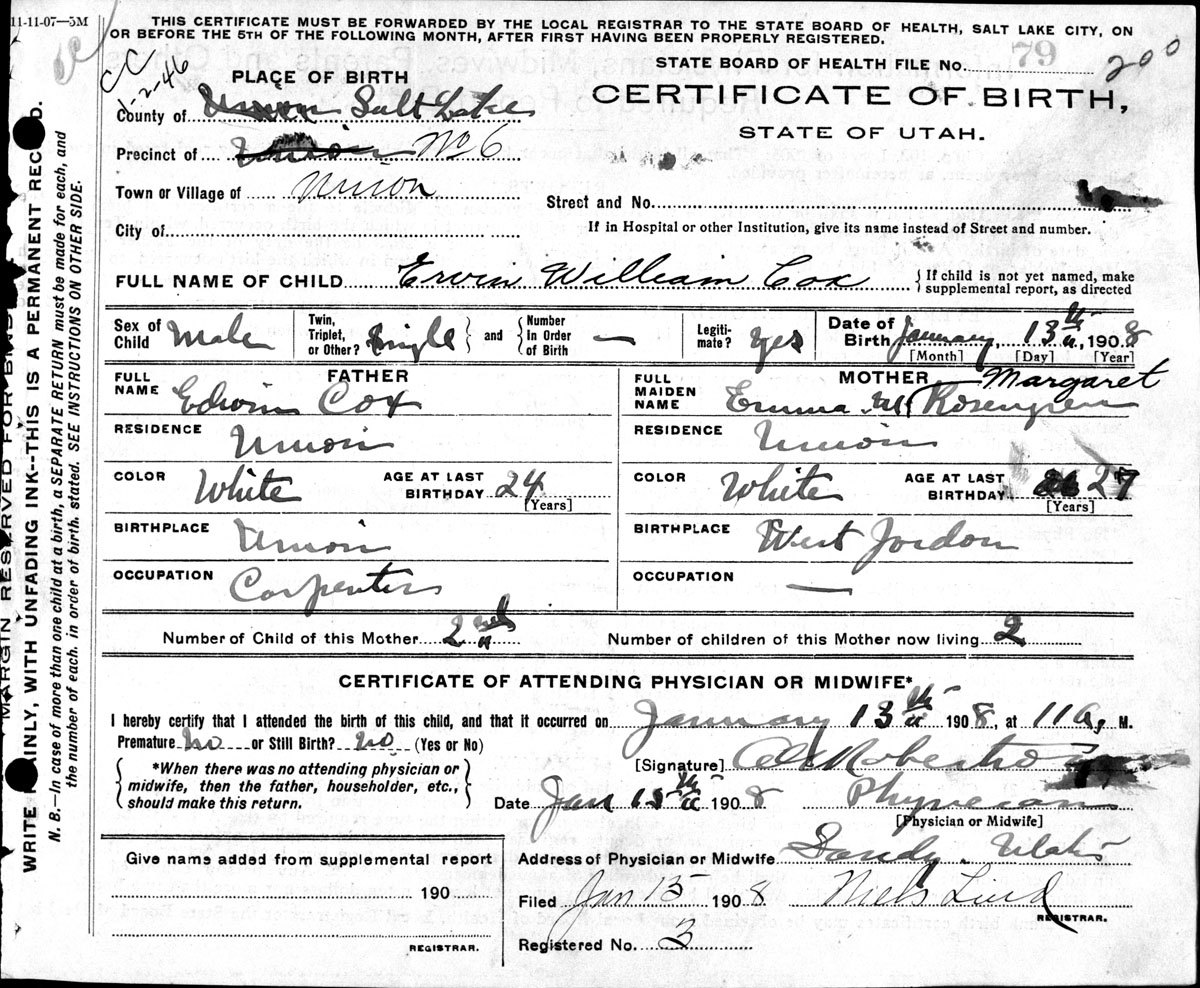 11-11-07—5M
THIS CERTIFICATE MUST BE FORWARDED BY THE LOCAL REGISTRAR TO THE STATE BOARD OF HEALTH, SALT LAKE CITY, ON
OR BEFORE THE 5TH OF THE FOLLOWING MONTH, AFTER FIRST HAVING BEEN PROPERLY REGISTERED.
STATE BOARD OF HEALTH FILE NO. 79 200
CC
1-2-46
PLACE OF BIRTH
CERTIFICATE OF BIRTH,
STATE OF UTAH.
County of Union Salt Lake
Precinct of Union No 6
Town or Village of Union
Street and No.
City of
If in Hospital or other Institution, give its name instead of Street and number.
FULL NAME OF CHILD Ervin William Cox { If child is not yet named, make
supplemental report, as directed
Sex of Child Male
Twin, Triplet, or Other? Single } and { Number In Order of Birth —
Legiti-mate? Yes
Date of Birth January, 13th, 1908
[Month] [Day] [Year]
FATHER
FULL NAME Edwin Cox
RESIDENCE Union
COLOR White AGE AT LAST BIRTHDAY 24 [Years]
BIRTHPLACE Union
OCCUPATION Carpenter
MOTHER Margaret
FULL MAIDEN NAME Emma Rosengren
RESIDENCE Union
COLOR White AGE AT LAST BIRTHDAY 27 [Years]
BIRTHPLACE West Jordon
OCCUPATION —
Number of Child of this Mother 2 Number of children of this Mother now living 2
CERTIFICATE OF ATTENDING PHYSICIAN OR MIDWIFE*
I hereby certify that I attended the birth of this child, and that it occurred on January 13th 1908, at 11 a, M.
Premature No or Still Birth? No (Yes or No)
{ *When there was no attending physician or
midwife, then the father, householder, etc.,
should make this return. }
[Signature] Robertson
Date Jan 15th 1908 Physician
[Physician or Midwife]
Give name added from supplemental report
190
REGISTRAR.
Address of Physician or Midwife Sandy. Utah
Filed Jan 15 1908 Niels Lind
REGISTRAR.
Registered No. 3
MARGIN RESERVED FOR
WRITE PLAINLY, WITH UNFADING INK--THIS IS A PERMANENT RECORD.
N. B.—In case of more than one child at a birth, a SEPARATE RETURN must be made for each, and
the number of each, in order of birth, stated. SEE INSTRUCTIONS ON OTHER SIDE.